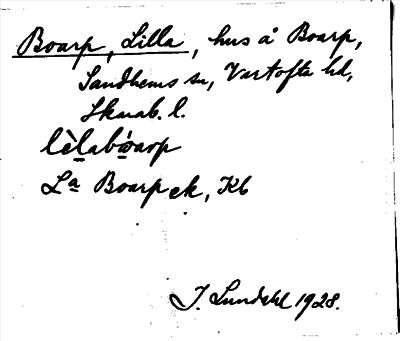 Boarp, Lilla, hus å Boarp,
Sandhems sn, Vartofta hd,
Skarab. l.
lèlabòarp
La Boarp ek, Kb
J. Lundahl 1928.